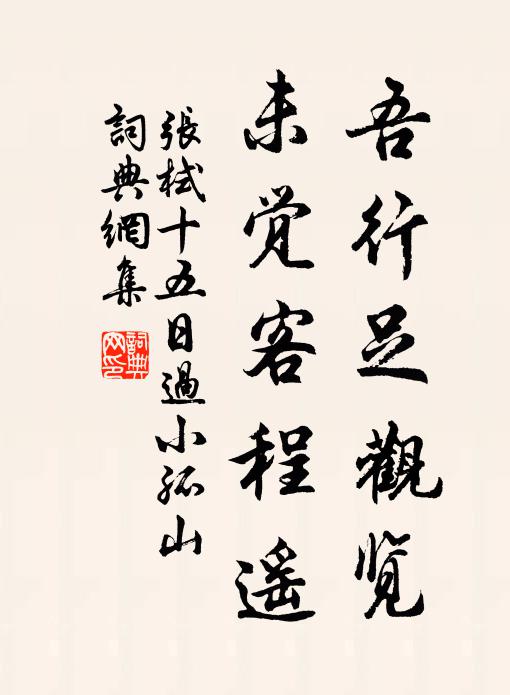 吾行足觀览
未觉客程遥
張栻十五日過小孤山
詞典網集
詞典网印